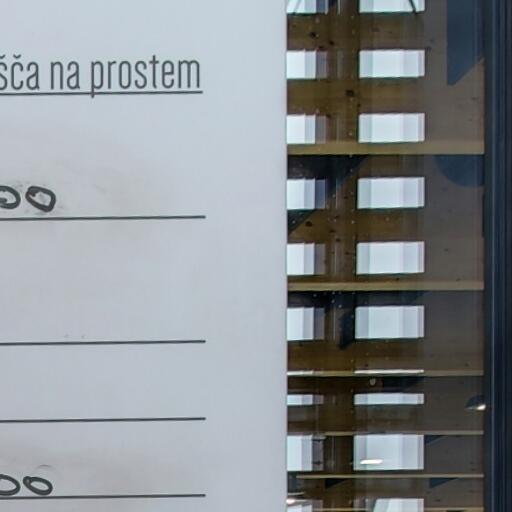 šča na prostem
00
00